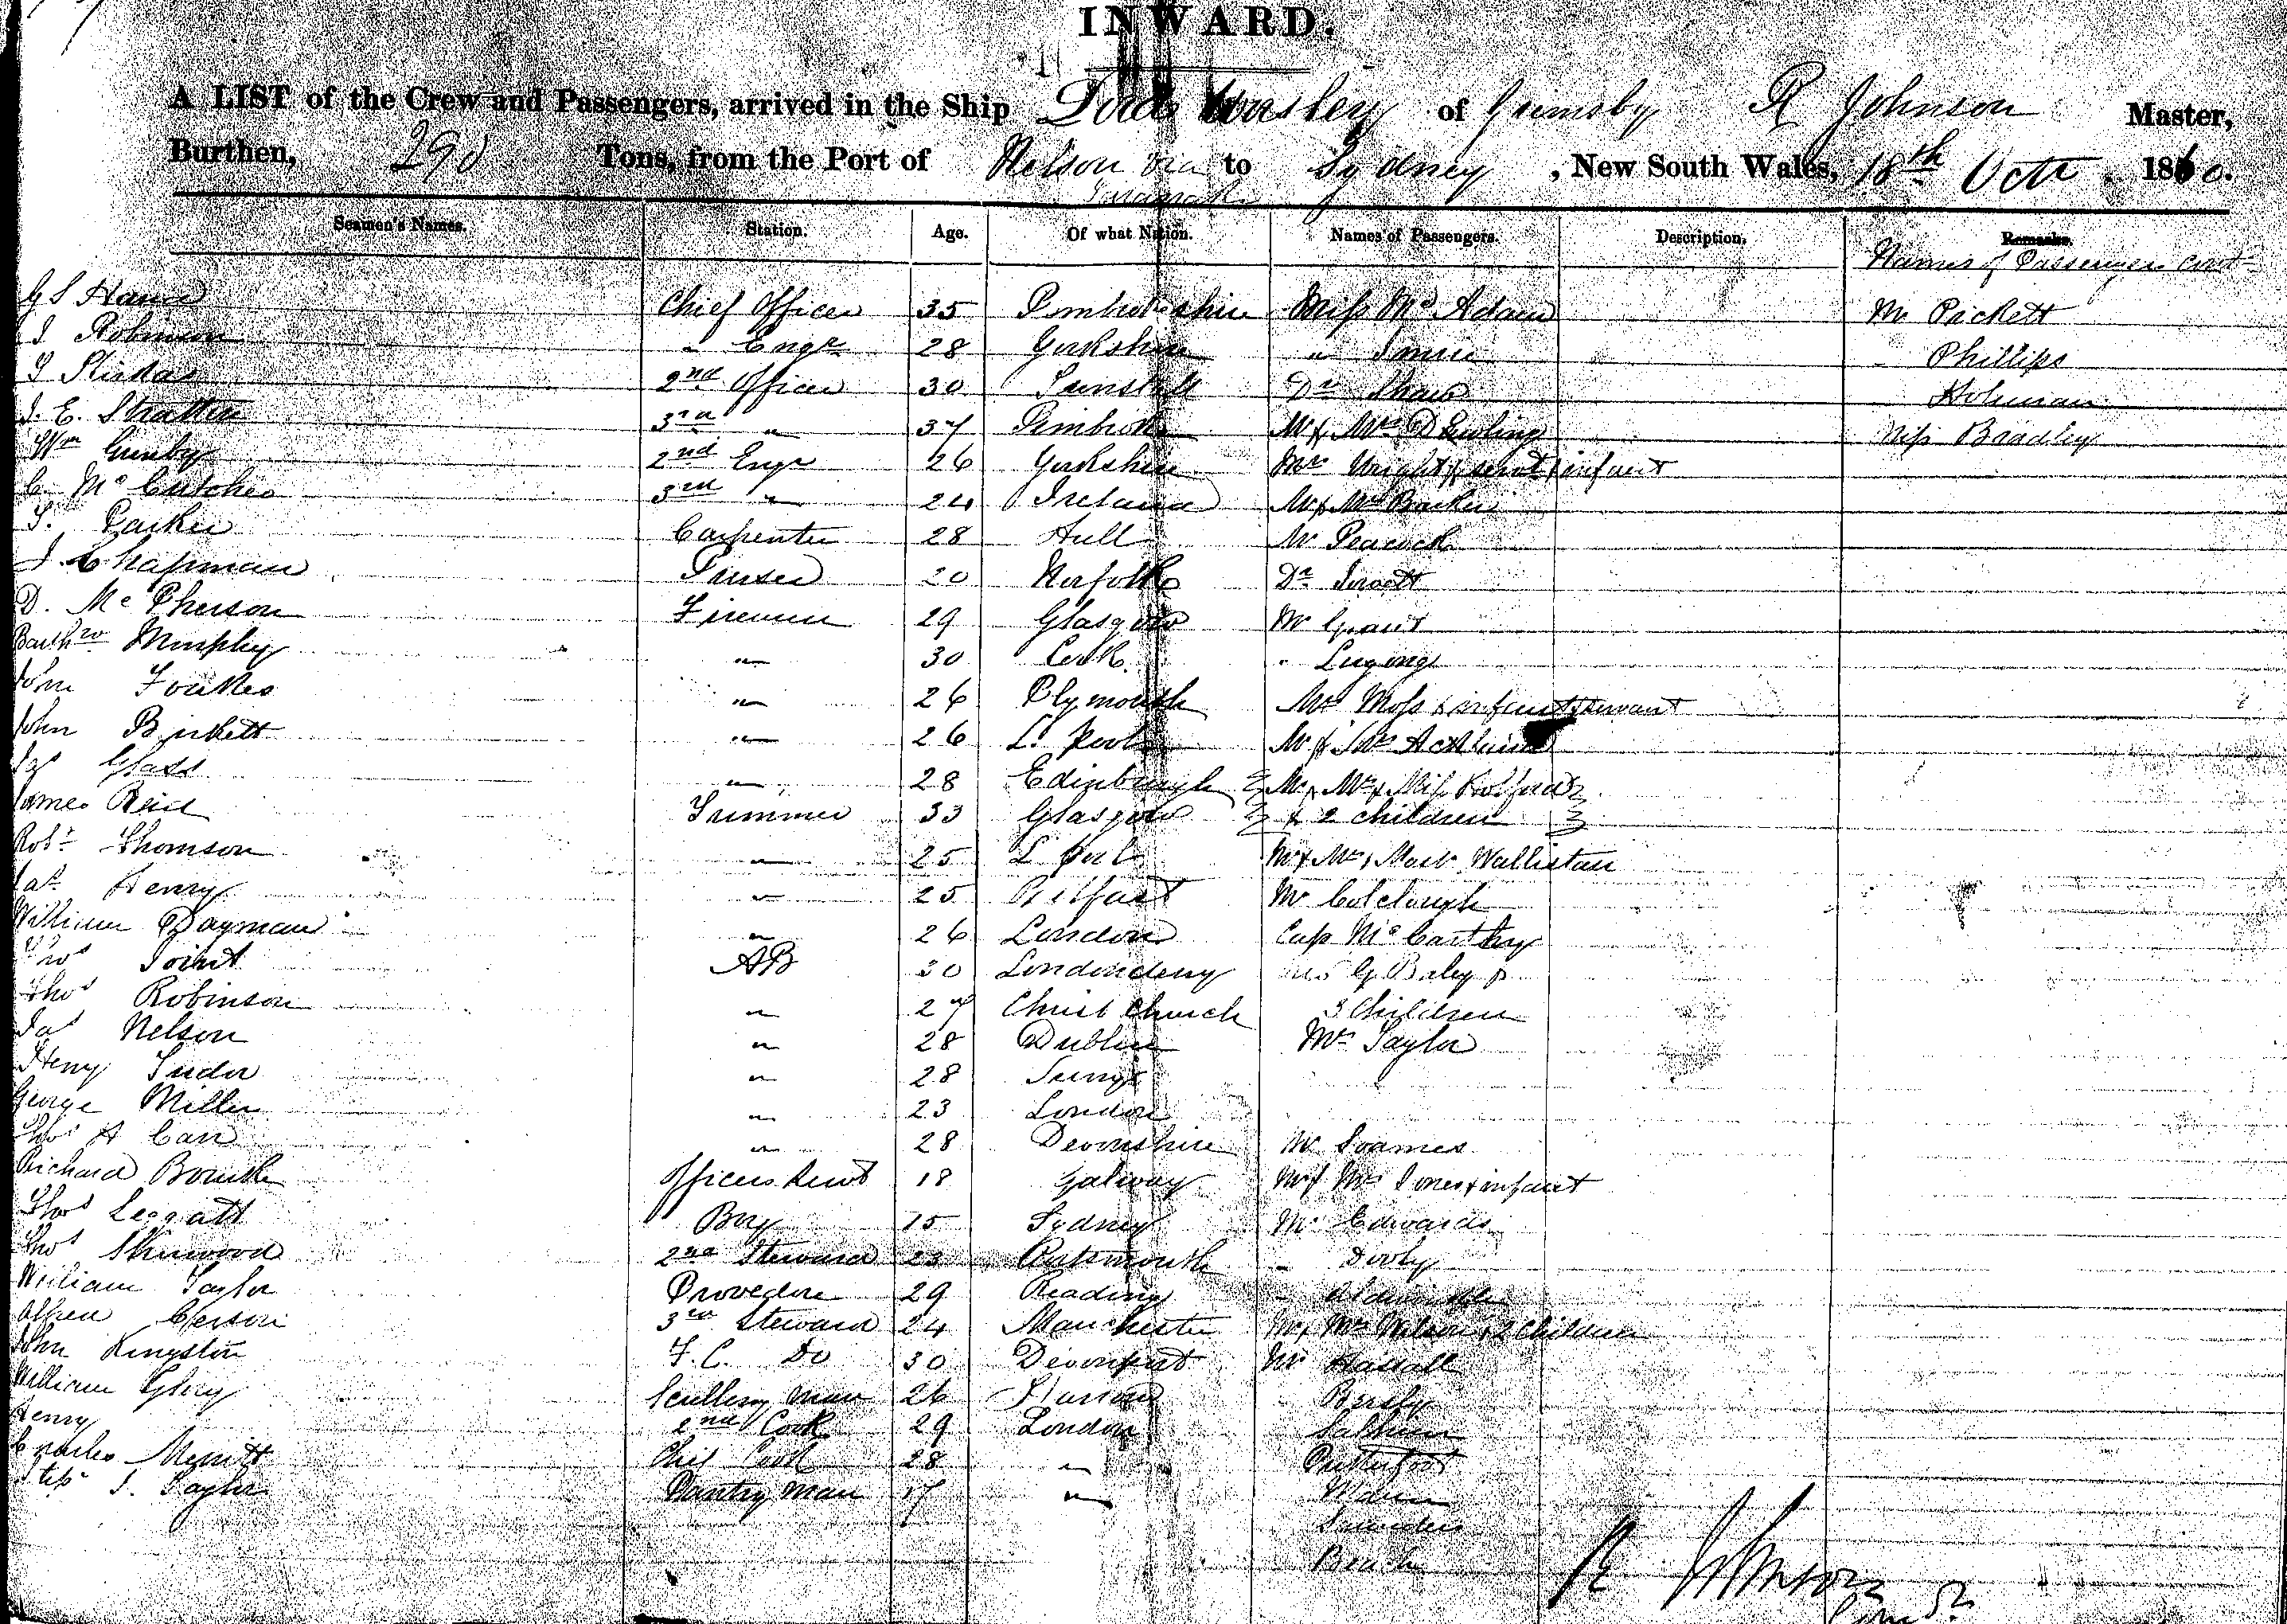 INWARD.
A LIST of the Crew and Passengers, arrived in the Ship Lord Worsley of Grimsby R Johnson Master,
Burthen, 290 Tons, from the Port of Nelson via to Sydney, New South Wales, 18th Octr 1860.
Taranaki
Seamen's Names. Station. Age. Of what Nation. Names of Passengers. Description. Remarks.
Names of Passengers cont
G S Chief Officer 35 Pembrokeshire Miss Mc Adam Mr Pickett
Robinson " Engr 28 Yorkshire " Phillips
2nd Officer 30 Dr Shaw Holman
J. E. Stratton 3rd " 37 Pembroke Mr & Mrs Dowling Miss Bradley
Wm Gunby 2nd Engr 26 Yorkshire Mrs Wright & servt & infant
C Mc Cutcheo 3rd " 24 Ireland Mr & Mrs
Parker Carpenter 28 Hull Mr Peacock
J. Chapman 20 Norfolk Dr
D. Mc Pherson Firemen 29 Glasgow Mr Grant
Barthw Murphy " 30 Cork "
John Foukes " 26 Plymouth Mrs Moss & infant & servant
John Birkett " 26 L. pool Mr & Mrs
Glass " 28 Edinburgh Mr, Mrs & Miss
James Reid Trimmer 33 Glasgow & 2 children
Robt Thomson " 25 L pool Mr & Mrs & Mast Wallistan
Jas Henry " 25 Belfast Mr Colclough
William Dayman " 26 London Cap Mc Carthy
Thos Joint AB 30 Londonderry Mrs G Baley &
Thos Robinson " 27 Christ Church 3 Children
Jas Nelson " 28 Dublin Mrs Taylor
Henry Tudor " 28 Surrey
George Miller " 23 London
Thos A Carr " 28 Devonshire Mr Soames
Richard Bourke Officers Servt 18 Galway Mr & Mrs Jones & infant
Thos Leggatt Boy 15 Sydney Mr Edwards
Thos Sherwood 2nd Steward 23 Portsmouth "
William Taylor Provedore 29 Reading "
Alfred Cerson 3rd Steward 24 Manchester Mr & Mrs Wilson & 2 Children
John Kingston F. C. Do 30 Devonport Mr Hassall
William Scullery man 26
Henry 2nd Cook 29 London
Charles Merritt Chief Cook 28 " Rutterford
Step J. Taylor Pantry man 17 "
Saunders
R Johnson